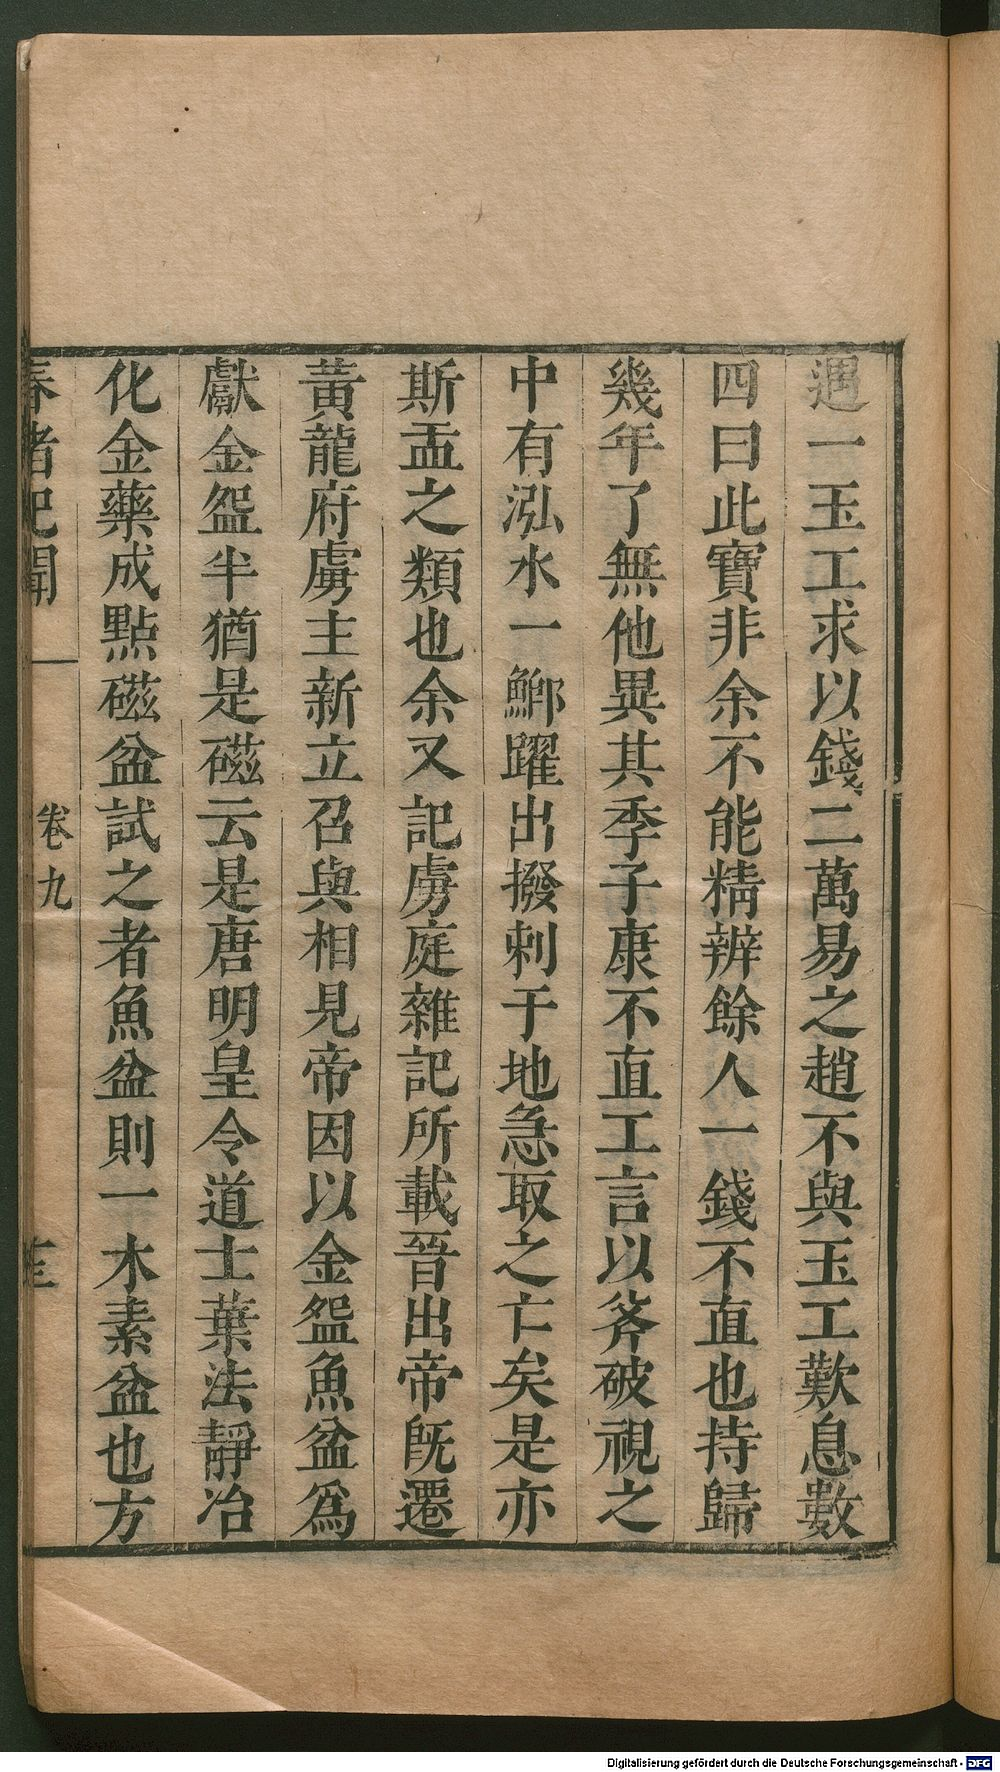 遇一玉工求以錢二萬易之趙不與玉工歎息數
四曰此寶非余不能精辨餘人一錢不直也持歸
幾年了無他異其季子康不直工言以斧破視之
中有泓水一鯽躍出撥剌于地急取之亡矣是亦
斯盂之類也余又記虜庭雜記所載晉出帝旣遷
黃龍府虜主新立召與相見帝因以金盌魚盆爲
獻金盌半猶是磁云是唐明皇令道士葉法靜冶
化金藥成點磁盆試之者魚盆則一木素盆也方
春渚紀聞 卷九
Digitalisierung gefördert durch die Deutsche Forschungsgemeinschaft - DFG